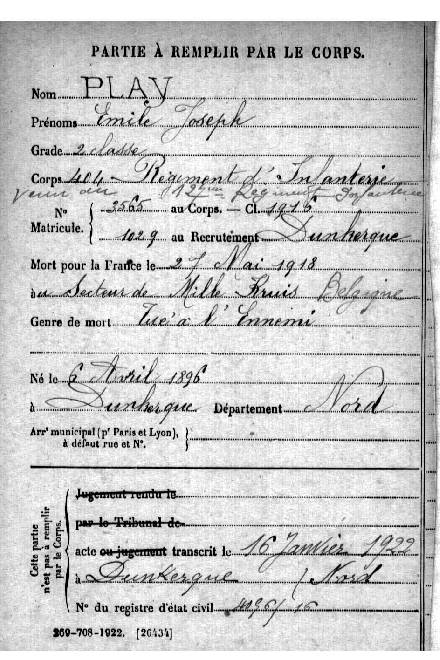 PARTIE À REMPLIR PAR LE CORPS.
Nom PLAY
Prénoms Emile Joseph
Grade 2 classe
Corps 404 Régiment d'Infanterie
venu du 112eme Régiment Infanterie
N° Matricule. 3565 au Corps. — Cl. 1916
1029 au Recrutement Dunkerque
Mort pour la France le 27 Mai 1918
au Secteur de Mille-Kruis Belgique
Genre de mort Tué à l'Ennemi
Né le 6 Avril 1896
à Dunkerque Département Nord
Arr^t municipal (p^r Paris et Lyon),
à défaut rue et N°.
Cette partie n'est pas à remplir par le Corps.
Jugement rendu le
par le Tribunal de
acte ou jugement transcrit le 16 Janvier 1922
à Dunkerque (Nord
N° du registre d'état civil /16
269-708-1922. [26434]